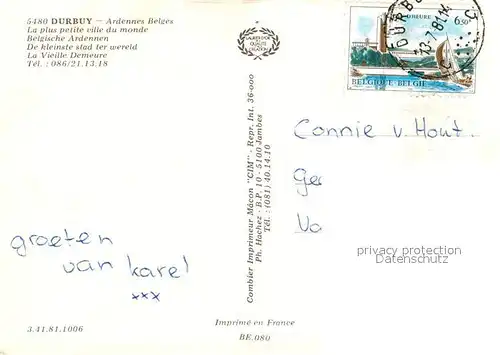 5480 DURBUY — Ardennes Belges
La plus petite ville du monde
Belgische Ardennen
De kleinste stad ter wereld
La Vieille Demeure
Tél. : 086/21.13.18
6,50
BELGIQUE-BELGIE
Connie v. Hout.
Ge
Vo
privacy protection
Description
groeten
van karel
xxx
Combier Imprimeur Mâcon "CIM" - Repr. Int. 36-000
Ph. Hachez - B.P. 10 - 5100 Jambes
Tél. : (081) 40.14.10
3.41.81.1006
Imprimé en France
BE.080